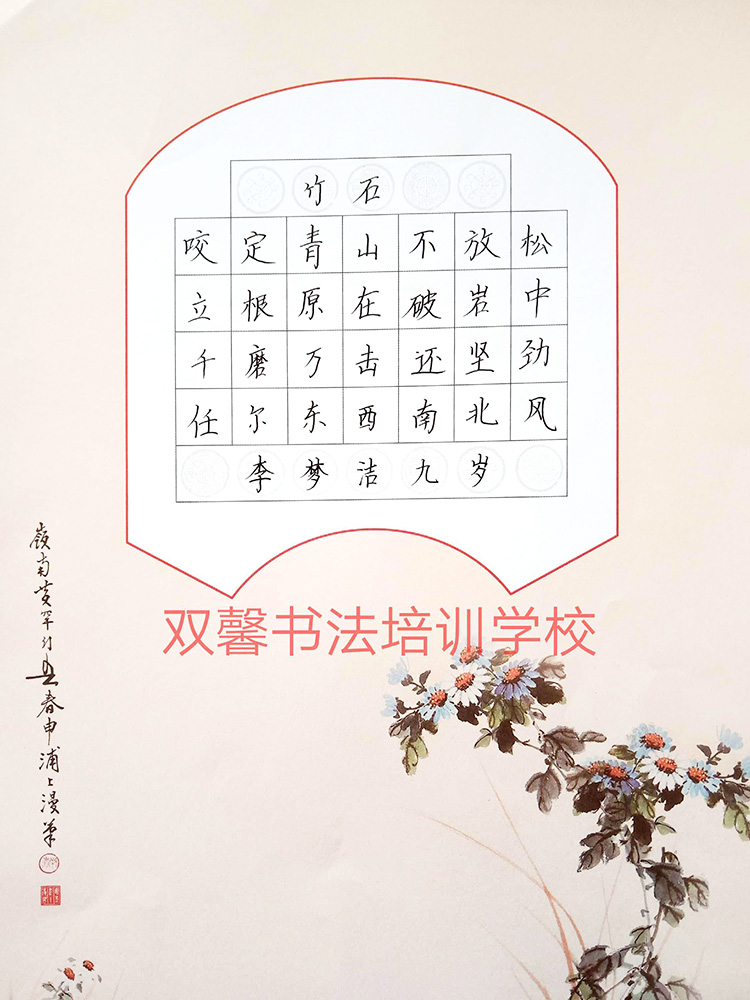 竹石
咬定青山不放松
立根原在破岩中
千磨万击还坚劲
任尔东西南北风
李梦洁九岁
双馨书法培训学校
嶺南黄春申浦上漫筆